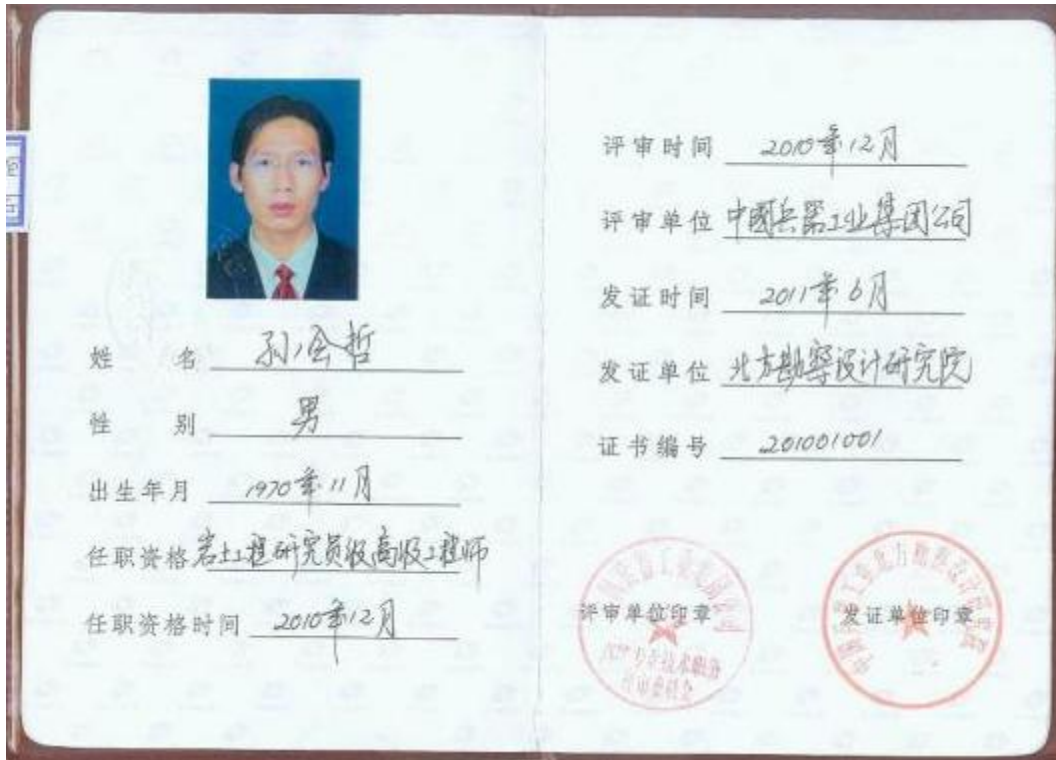 姓 名 孙会哲
性 别 男
出生年月 1970年11月
任职资格 岩土工程研究员级高级工程师
任职资格时间 2010年12月
评审时间 2010年12月
评审单位 中國兵器工业集团公司
发证时间 2011年6月
发证单位 北方勘察设计研究院
证书编号 201001001
评审单位印章
专业技术职务
评审委员会
发证单位印章